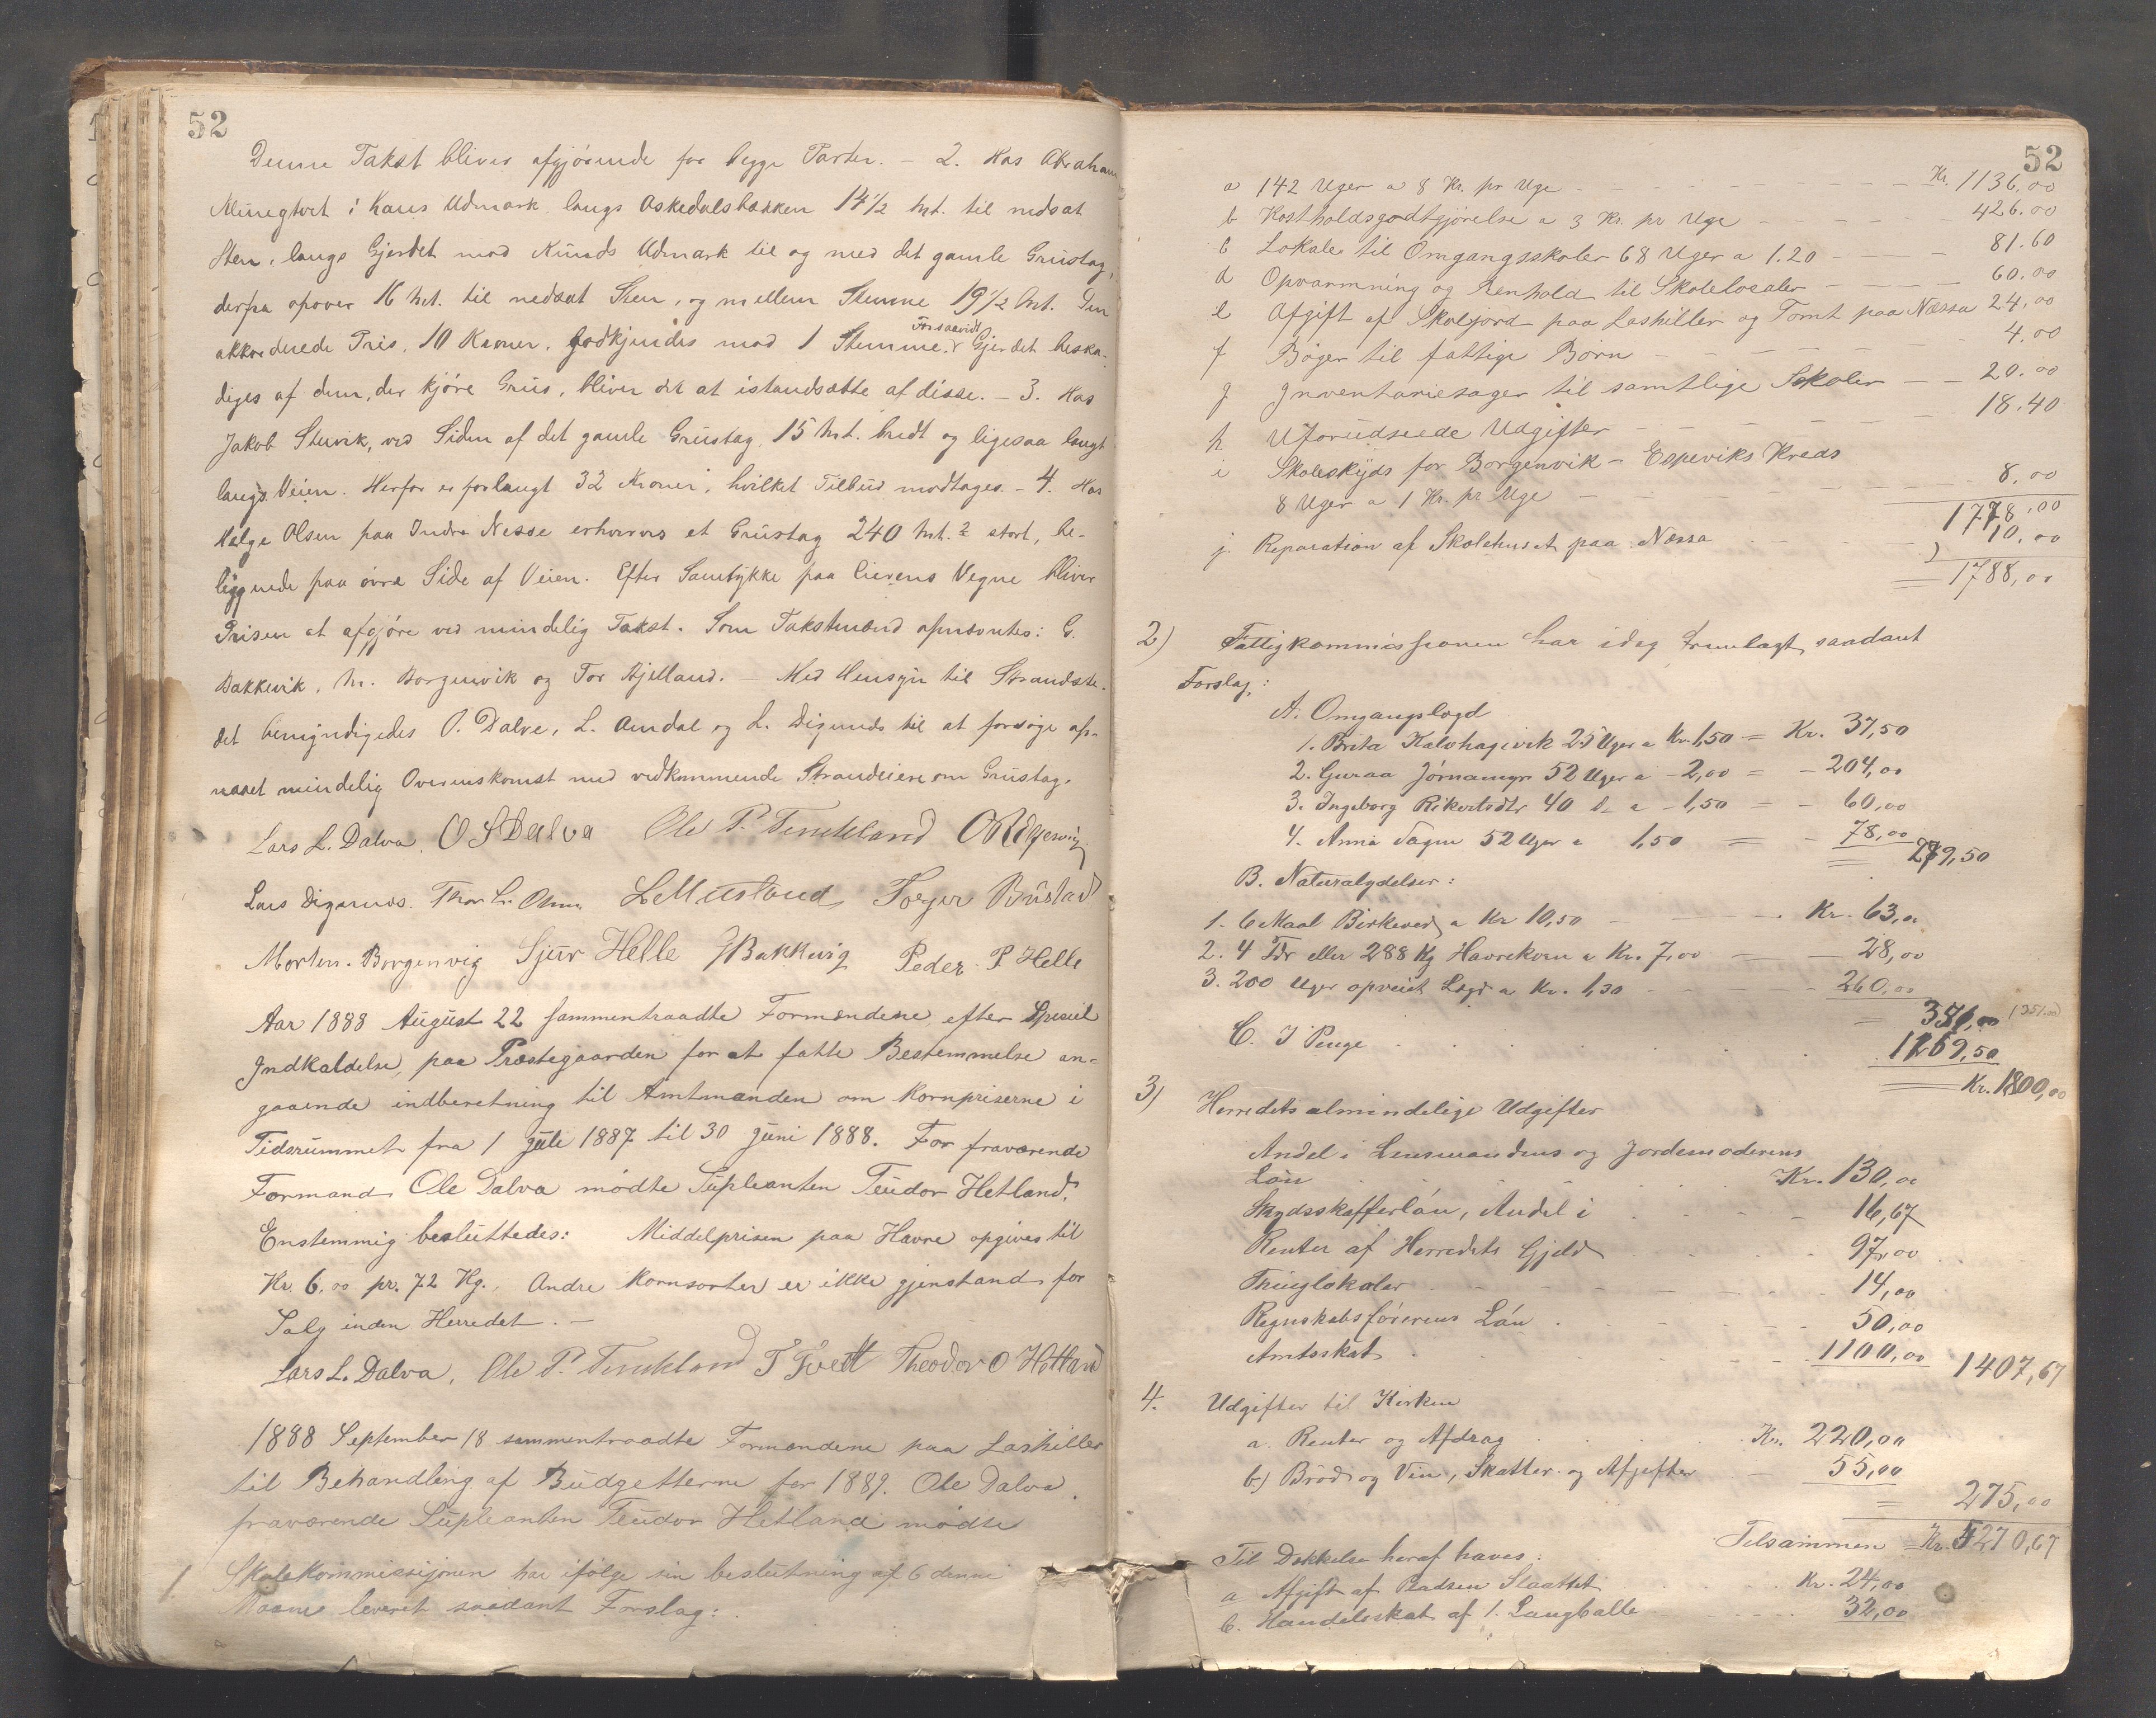 52
Denne Takst bliver afgjørende for begge Parter. – 2. Hos Abraham
i Hans Udmark langs Askedalsbækken 14½ Mt. til nedsat
Sten, langs Gjerdet mod Knuds Udmark til og med det gamle Grustag,
derfra opover 16 Mt. til nedsat Sten, og mellem Stenene 19½ Mt. Den
akkorderede Pris, 10 Kroner, godkjendes mod 1 Stemme. Forsaavidt Gjerdet beska-
diges af dem, der kjøre Grus, bliver det at istandsætte af disse. – 3. Hos
Jakob Stuvik, ved Siden af det gamle Grustag, 15 Mt. bredt og ligesaa langt
langs Veien. Herfor er forlangt 32 Kroner, hvilket Tilbud modtages. – 4. Hos
Helge Olsen paa Indre Nesse erhverves et Grustag 240 Mt.² stort, be-
liggende paa øvre Side af Veien. Efter Samtykke paa Eierens Vegne bliver
Prisen at afgjøre ved mindelig Takst. Som Takstmænd opnævntes: G.
Bakkevik, M. Borgenvik og Tor Hjelland. – Med Hensyn til Strandste-
det bemyndigedes O. Dalve, L. Omdal og L. Digernes til at forsøge op-
naaet mindelig Overenskomst med vedkommende Strandeiere om Grustag.
Lars L. Dalva. O S Dalva Ole P. Tinkland
Lars Digernes. Thor L. Ohm. L Musland Torger Bustad
Morten Borgenvig Sjur Helle G Bakkevig Peder P Helle
Aar 1888 August 22 sammentraadte Formændene efter Speciel
Indkaldelse, paa Præstegaarden for at fatte Bestemmelse an-
gaaende indberetning til Amtmanden om Kornpriserne i
Tidsrummet fra 1 Juli 1887 til 30 Juni 1888. For fraværende
Formand Ole Dalva mødte Supleanten Teudor Hetland.
Enstemmig besluttedes: Middelprisen paa Havre opgives til
Kr. 6,00 pr. 72 Kg. Andre Kornsorter er ikke gjenstand for
Salg inden Herredet. –
Lars L. Dalva, Ole P. Tinkland T Tvedt Theodor O Hetland
1888 September 18 sammentraadte Formændene paa Lashiller
til Behandling af Budgetterne for 1889. Ole Dalva
fraværende Supleanten Teudor Hetland mødte
1. Skolekommissjonen har ifølge sin beslutning af 6 denne
Maaned leveret saadant Forslag:
52
a 142 Uger a 8 Kr. pr Uge – Kr. 1136,00
b Kostholdsgodtgjørelse a 3 Kr. pr Uge – 426.00
c Lokale til Omgangsskoler 68 Uger a 1.20 – 81.60
d Opvarmning og Renhold til Skolelocaler – 60.00
e Afgift af Skolejord paa Lashiller og Tomt paa Næssa 24,00
f Bøger til fattige Børn – 4.00
g Inventariesager til samtlige Skoler – 20.00
h Uforudseede Udgifter – 18.40
i Skoleskyds for Borgenvik – Espeviks Kreds
8 Uger a 1 Kr. pr Uge – 8,00
1778,00
j Reparation af Skolehuset paa Næssa 10,00
= 1788,00
2) Fattigkommissionen har idag fremlagt saadant
Forslag:
A. Omgangslægd
1. Brita Kalvhagevik 25 Uger a Kr. 1,50 = Kr. 37,50
2. Guraa Jørnamyr 52 Uger a – 2,00 = – 204,00
3. Ingeborg Rikertsdtr 40 D– a – 1,50 = – 60,00
4. Anna 52 Uger a 1,50 = – 78,00
= 279,50
B. Naturalydelser:
1. 6 Maal Birkeved a Kr 10,50 – Kr. 63,00
2. 4 Tdr eller 288 Kg Havrekorn a Kr. 7,00 – 28,00
3. 200 Uger Lægd a Kr. 1,30 – 260,00
= 351,00 (351.00)
C. I Penge 1169,50
= Kr. 1800,00
3) Herredets almindelige Udgifter
Andel i Lensmandens og Jordemoderens
Løn Kr. 130,00
Skydsskafferløn, Andel i – 16,67
Renter af Herredets Gjeld 97,00
Thinglokaler – 14,00
Regnskabsførerens Løn 50,00
Amtsskat – 1100,00 1407,67
4. Udgifter til Kirken
a. Renter og Afdrag Kr. 220,00
b) Brød og Vin, Skatter og Afgifter – 55,00
= 275,00
Tilsammen Kr. 5270,67
Til Dækkelse heraf haves:
a Afgift af Slaattet Kr. 24,00
b. Handelsskat af 1. Langballe 32,00